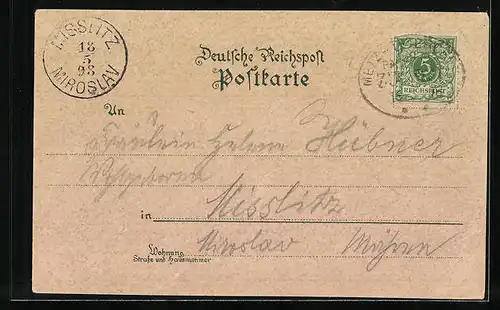 MISSLITZ
18
5
98
MIROSLAV
Deutsche Reichspost
Postkarte
5
REICHSPOST
An
Fräulein Helene Hübner
in Misslitz
Miroslav Mähren
Wohnung
Straße und Hausnummer